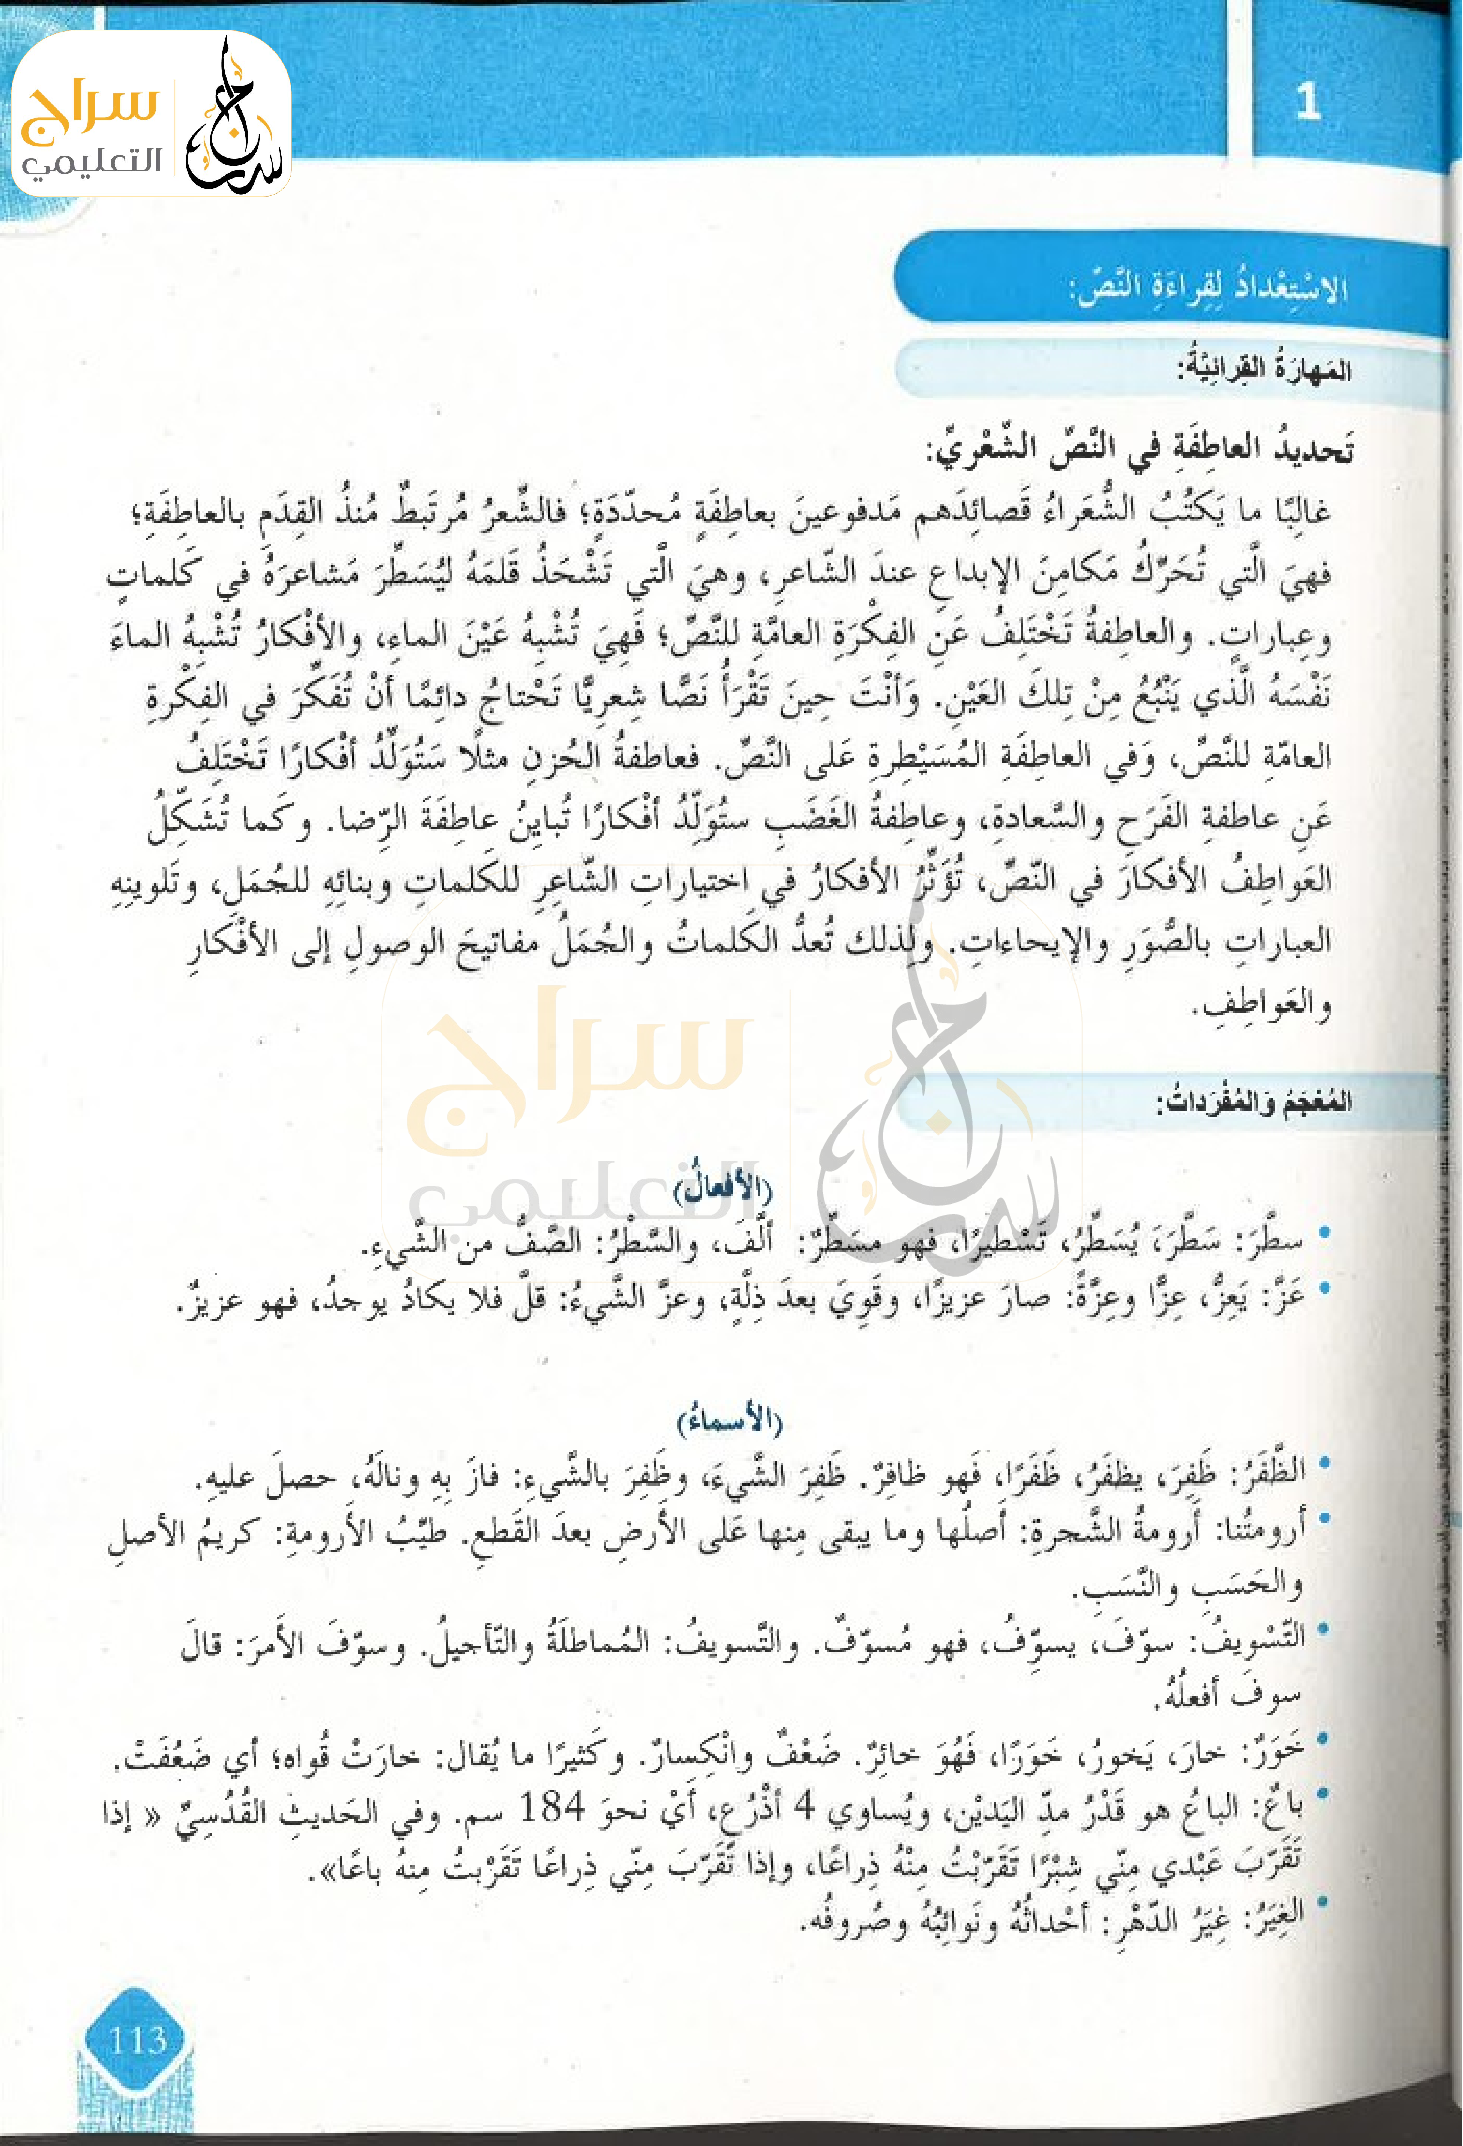 سراج
التعليمي
1
الاسْتِعْدادُ لِقِراءَةِ النَّصِّ:
المَهارَةُ القِرائِيَّةُ:
تَحديدُ العاطِفَةِ في النَّصِّ الشّعْريِّ:
غالِبًا ما يَكتُبُ الشُّعَراءُ قَصائِدَهم مَدفوعينَ بعاطِفَةٍ مُحدّدَةٍ؛ فالشِّعرُ مُرتَبطٌ مُنذُ القِدَمِ بالعاطِفَةِ؛
فهيَ الَّتي تُحَرِّكُ مَكامِنَ الإبداعِ عندَ الشّاعرِ، وهيَ الَّتي تَشْحَذُ قلمَهُ ليُسَطِّرَ مَشاعرَهُ في كَلماتٍ
وعباراتٍ. والعاطِفةُ تَخْتَلِفُ عَنِ الفِكْرَةِ العامَّةِ للنَّصِّ؛ فَهِيَ تُشْبِهُ عَيْنَ الماءِ، والأفْكارُ تُشْبِهُ الماءَ
نَفْسَهُ الَّذي يَنْبُعُ مِنْ تِلكَ العَيْنِ. وَأنْتَ حِينَ تَقْرَأُ نَصًّا شِعرِيًّا تَحْتاجُ دائِمًا أنْ تُفَكِّرَ في الفِكْرةِ
العامّةِ للنَّصِّ، وَفي العاطِفَةِ المُسَيْطِرةِ عَلى النَّصِّ. فعاطفةُ الحُزنِ مثلًا سَتُوَلِّدُ أفْكارًا تَخْتَلِفُ
عَنِ عاطفةِ الفَرَحِ والسَّعادةِ، وعاطِفةُ الغَضَبِ ستُوَلِّدُ أفْكارًا تُبايِنُ عاطِفَةَ الرِّضا. وكَما تُشَكِّلُ
العَواطِفُ الأفكارَ في النّصِّ، تُؤَثِّرُ الأفكارُ في اختياراتِ الشّاعِرِ للكَلماتِ وبنائِهِ للجُمَلِ، وتَلوينِهِ
العباراتِ بالصُّوَرِ والإيحاءاتِ. ولِذلك تُعدُّ الكَلماتُ والجُمَلُ مفاتيحَ الوصولِ إلى الأفْكارِ
والعَواطِفِ.
المُعْجَمُ وَالمُفْرَداتُ:
(الأفعالُ)
• سطَّرَ: سَطَّرَ، يُسَطِّرُ، تَسْطيرًا، فهو مسَطِّرٌ: ألَّفَ، والسَّطْرُ: الصَّفُّ من الشَّيءِ.
• عَزَّ: يَعِزُّ، عِزًّا وعِزَّةً: صارَ عزيزًا، وقَوِيَ بعدَ ذِلّةٍ، وعزَّ الشَّيءُ: قلَّ فلا يكادُ يوجدُ، فهو عزيزٌ.
(الأسماءُ)
• الظَّفَرُ: ظَفِرَ، يظفَرُ، ظَفَرًا، فَهو ظافِرٌ. ظَفِرَ الشَّيءَ، وظَفِرَ بالشَّيءِ: فازَ بِهِ ونالَهُ، حصلَ عليهِ.
• أرومتُنا: أَرومةُ الشَّجرةِ: أَصلُها وما يبقى مِنها عَلى الأَرضِ بعدَ القَطعِ. طيِّبُ الأَرومةِ: كريمُ الأصلِ
والحَسَبِ والنَّسَبِ.
• التّسْويفُ: سوّفَ، يسوِّفُ، فهو مُسوّفٌ. والتَّسويفُ: المُماطلَةُ والتّأجيلُ. وسوّفَ الأَمرَ: قالَ
سوفَ أفعلُهُ.
• خَوَرٌ: خارَ، يَخورُ، خَوَرًا، فَهُوَ خائِرٌ. ضَعْفٌ وانْكِسارٌ. وكَثيرًا ما يُقال: خارَتْ قُواه؛ أي ضَعُفَتْ.
• باعٌ: الباعُ هو قَدْرُ مدِّ اليَديْن، ويُساوي 4 أذْرُعٍ، أيْ نحوَ 184 سم. وفي الحَديثِ القُدُسِيِّ « إذا
تَقَرّبَ عَبْدي مِنّي شِبْرًا تَقَرّبْتُ مِنْهُ ذِراعًا، وإذا تَقَرّبَ مِنّي ذِراعًا تَقَرْبتُ مِنهُ باعًا».
• الغِيَرُ: غِيَرُ الدّهْرِ: أحْداثُهُ ونَوائِبُهُ وصُروفُه.
113